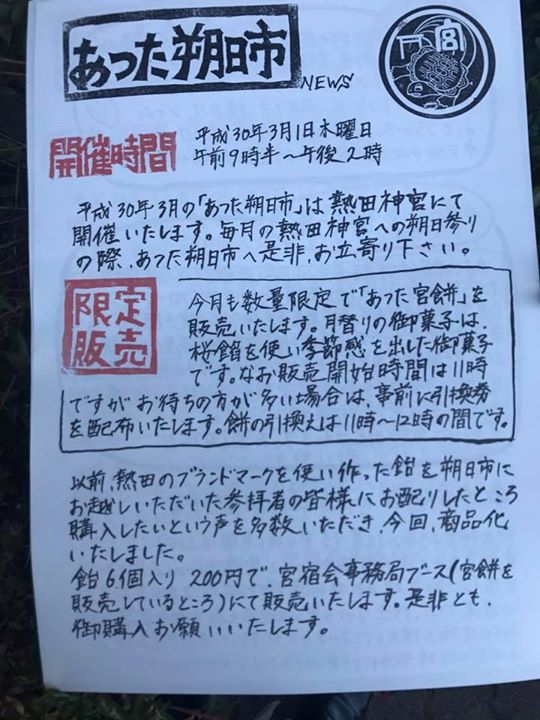 あった朔日市
NEWS
宮
開催時間
平成30年3月1日木曜日
午前9時半〜午後2時
平成30年3月の「あった朔日市」は熱田神宮にて
開催いたします。毎月の熱田神宮への朔日参り
の際、あった朔日市へ是非、お立寄り下さい。
限定
販売
今月も数量限定で「あった宮餅」を
販売いたします。月替りの御菓子は、
桜餡を使い季節感を出した御菓子
です。なお販売開始時間は11時
ですがお待ちの方が多い場合は、事前に引換券
を配布いたします。餅の引換えは11時〜12時の間です。
以前、熱田のブランドマークを使い作った飴を朔日市に
お越しいただいた参拝者の皆様にお配りしたところ
購入したいという声を多数いただき、今回、商品化
いたしました。
飴6個入り 200円で、宮宿会事務局ブース(宮餅を
販売しているところ)にて販売いたします。是非とも、
御購入お願いいたします。